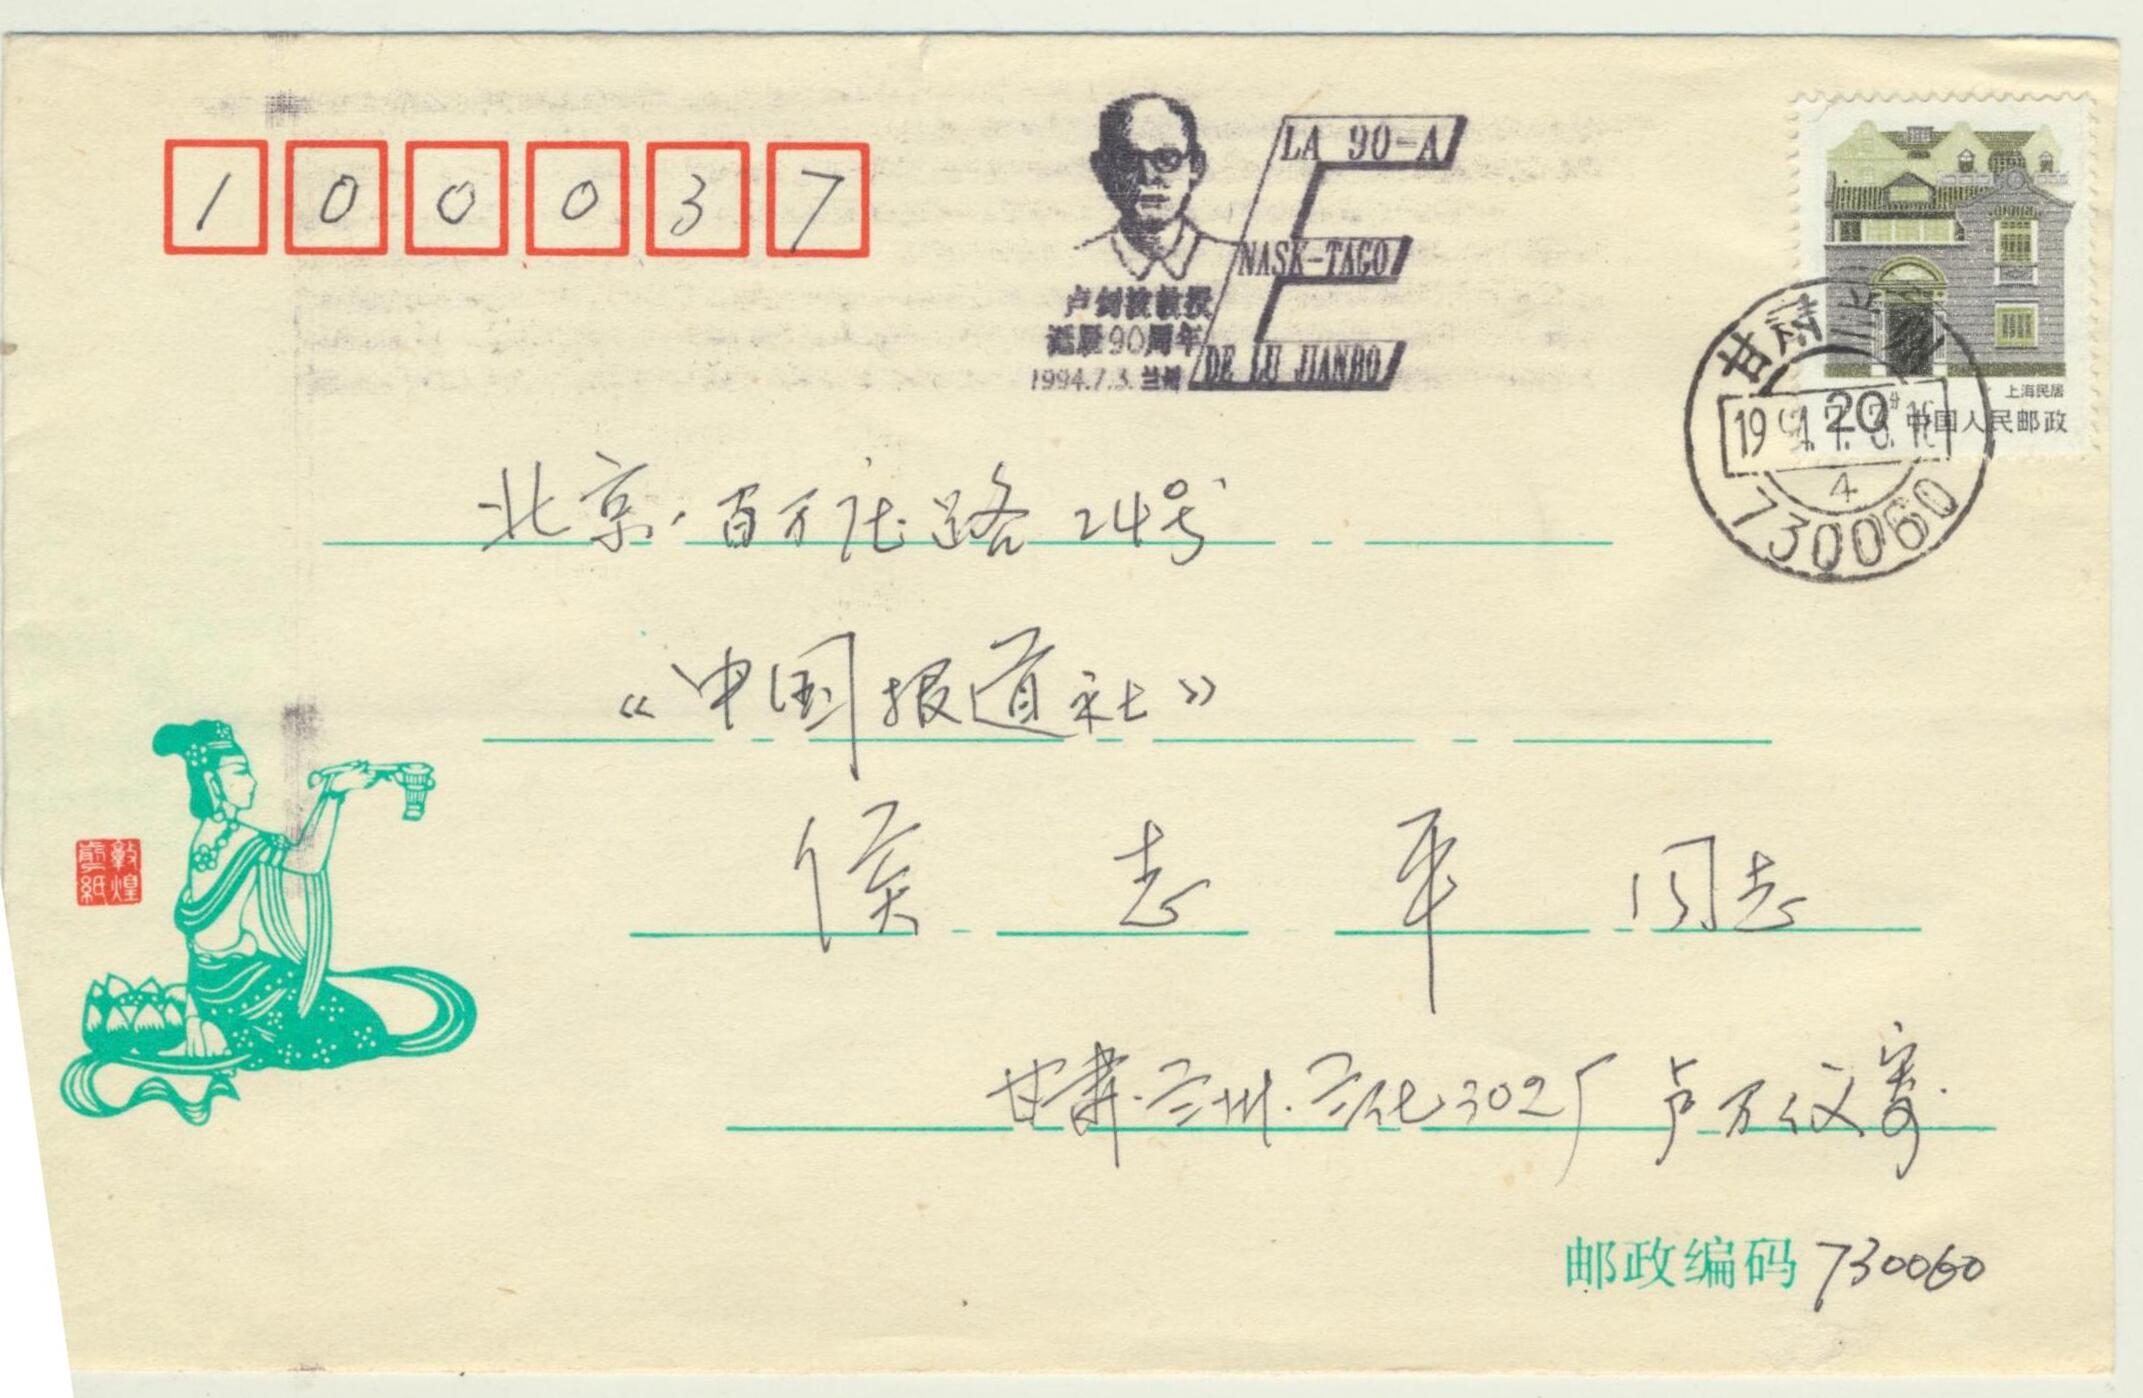 100037
LA 90-A
NASK-TAGO
DE LU JIANBO
卢剑波教授
诞辰90周年
1994.7.3. 兰州
上海民居
20分 中国人民邮政
甘肃兰州
4
730060
北京·百万庄路24号
《中国报道社》
侯志平同志
敦煌
甘肃·兰州·兰化302厂 卢万仪寄
邮政编码 730060